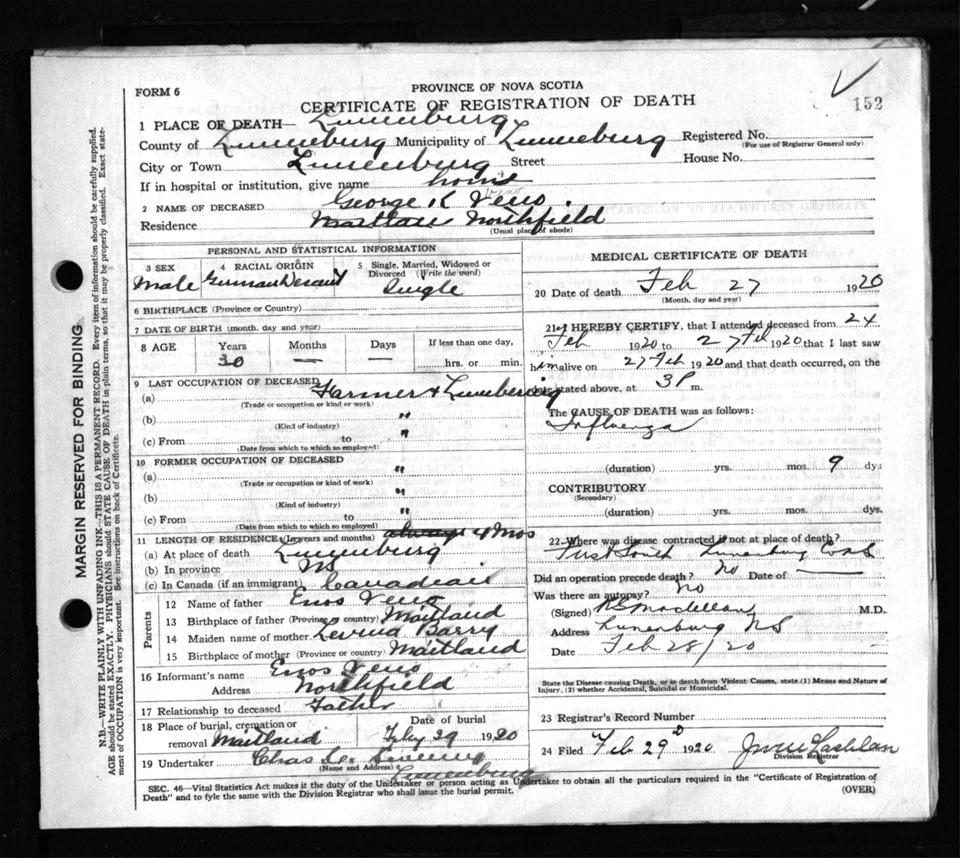 FORM 6
PROVINCE OF NOVA SCOTIA
CERTIFICATE OF REGISTRATION OF DEATH
152
1 PLACE OF DEATH— Lunenburg
County of Lunenburg Municipality of Lunenburg Registered No.
(For use of Registrar General only)
City or Town Lunenburg Street House No.
If in hospital or institution, give name home
Veno
2 NAME OF DECEASED George K Veno
Residence Maitland Northfield
(Usual place of abode)
PERSONAL AND STATISTICAL INFORMATION
3 SEX 4 RACIAL ORIGIN 5 Single, Married, Widowed or Divorced (Write the word)
Male German Single
6 BIRTHPLACE (Province or Country)
7 DATE OF BIRTH (month, day and year)
8 AGE Years Months Days If less than one day,
30 — — hrs. or min.
9 LAST OCCUPATION OF DECEASED
(a) Farmer & Lumbering
(Trade or occupation or kind or work)
(b) "
(Kind of industry)
(c) From to "
(Date from which to which so employed)
10 FORMER OCCUPATION OF DECEASED
(a) "
(Trade or occupation or kind of work)
(b) "
(Kind of industry)
(c) From to "
(Date from which to which so employed)
11 LENGTH OF RESIDENCE (In years and months) always 4 Mos
(a) At place of death Lunenburg
(b) In province NS
(c) In Canada (if an immigrant) Canadian
Parents
12 Name of father Enos Veno
13 Birthplace of father (Province or country) Maitland
14 Maiden name of mother Levina Barry
15 Birthplace of mother (Province or country) Maitland
16 Informant's name Enos Veno
Address Northfield
17 Relationship to deceased Father
18 Place of burial, cremation or removal Maitland Date of burial Feby 29 1920
19 Undertaker Chas
(Name and Address) Lunenburg
MEDICAL CERTIFICATE OF DEATH
20 Date of death Feb 27 1920
(Month, day and year)
21 I HEREBY CERTIFY, that I attended deceased from 24
Feb 1920 to 27 Feb 1920 that I last saw
him alive on 27 Feb 1920 and that death occurred, on the
date stated above, at 3 P m.
The CAUSE OF DEATH was as follows:
Influenza
(duration) yrs. mos. 9 dys
CONTRIBUTORY
(Secondary)
(duration) yrs. mos. dys.
22 Where was disease contracted if not at place of death?
First South Lunenburg Co NS
Did an operation precede death? No Date of —
Was there an autopsy? No
(Signed) M.D.
Address Lunenburg NS
Date Feb 28/20
State the Disease causing Death, or in death from Violent Causes, state (1) Means and Nature of
Injury, (2) whether Accidental, Suicidal or Homicidal.
23 Registrar's Record Number
24 Filed Feb 29 1920
Division Registrar
SEC. 46—Vital Statistics Act makes it the duty of the Undertaker or person acting as Undertaker to obtain all the particulars required in the "Certificate of Registration of
Death" and to fyle the same with the Division Registrar who shall issue the burial permit.
(OVER)
MARGIN RESERVED FOR BINDING
N.B.—WRITE PLAINLY WITH UNFADING INK—THIS IS A PERMANENT RECORD. Every item of information should be carefully supplied.
AGE should be stated EXACTLY. PHYSICIANS should STATE CAUSE OF DEATH in plain terms, so that it may be properly classified. Exact state-
ment of OCCUPATION is very important. See instructions on back of Certificate.